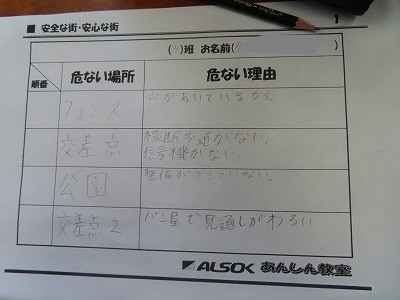 ■ 安全な街・安心な街
1
( )班 お名前(
順番 危ない場所 危ない理由
フェンス 穴があいているから。
交差点 横断歩道がない。
信号機がない。
公園 整備ができていない。
交差点2 パン屋で見通しがわるい
ALSOK あんしん教室